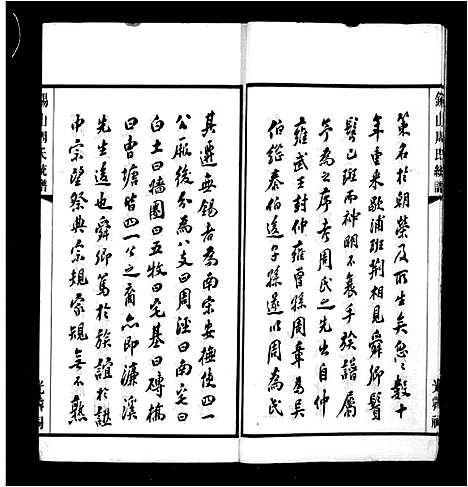 錫山周氏統譜
策名於朝榮及所生矣怱々數十
年重来歇浦班荆相見舜卿鬢
髮已斑而神明不衰手族譜屬
予為之序考周氏之先生自仲
雍武王封仲雍曾孫周章為吳
伯繼泰伯後子孫遂以周為氏
光霽祠
錫山周氏統譜
其遷無錫者為南宋安撫使四一
公厥後分為八支曰周涇曰南宅曰
白土曰牆圍曰五牧曰宅基曰磚橋
曰曹塘皆四一公之裔亦即濂溪
先生遠也舜卿篤於族誼於譜
中宗壁祭典宗規家規無不熟
光霽祠